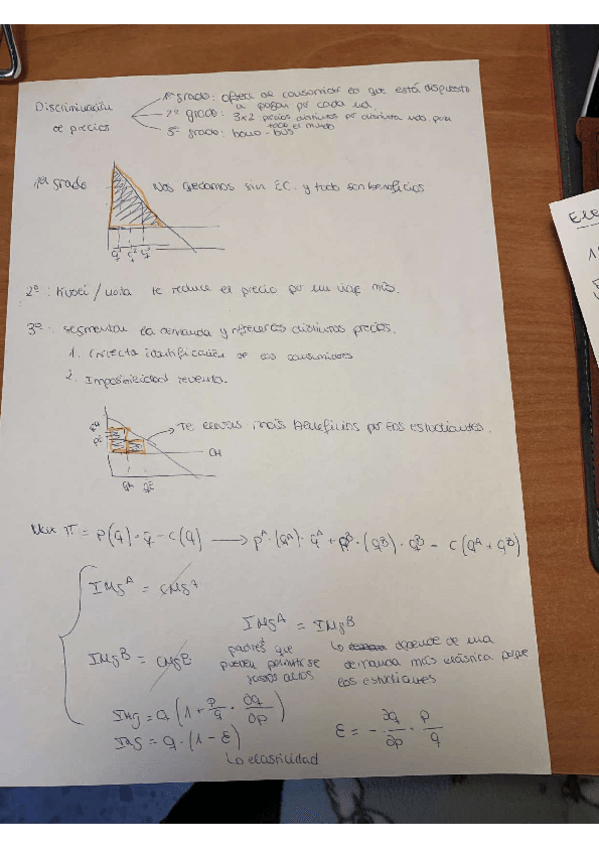 Discriminación de precios
1er grado: ofrecer al consumidor lo que está dispuesto
a pagar por cada ud.
2º grado: 3x2 precios distintos por distinta uds. para
todo el mundo
3º grado: bono-bus
1er grado
Nos quedamos sin EC. y todo son beneficios
2º: Kusei / te reduce el precio por un viaje más.
3º: Segmentar la demanda y ofrecerles distintos precios.
1. Correcta identificación de los consumidores
2. Imposibilidad reventa.
Te llevas más beneficios por los estudiantes.
CM
qM qE
Max π = P(q) · q - C(q) → P^A · (q^A) · q^A + P^B · (q^B) · q^B - C(q^A + q^B)
IMg^A = CMg^A
IMg^A = IMg^B
IMg^B = CMg^B
padres que
pueden permitirse
depende de una
demanda más elástica porque
los estudiantes
IMg = q (1 + p/q · ∂q/∂p)
IMg = q · (1 - ε)
ε = - ∂q/∂p · p/q
elasticidad
Ele